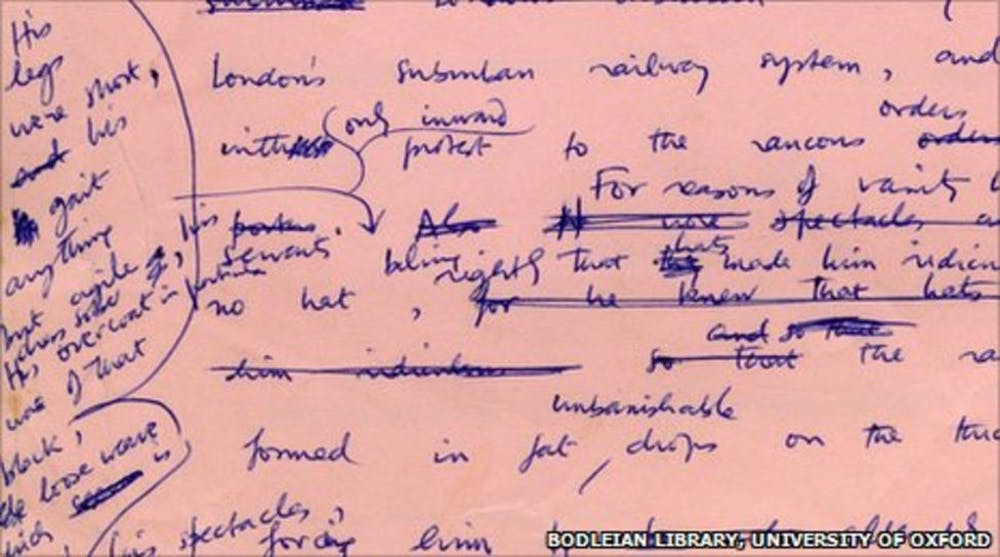 His
legs
were short,
and his
gait
anything
but agile
His overcoat in particular
was of that
black,
loose weave
London's suburban railway system, and
orders
only inward
protest to the rancous orders
For reasons of vanity
his were spectacles
servants'
believing rightly that hats made him
no hat, for he knew that hats
and so that
him ridiculous so that the
unbanishable
formed in fat drops on the
his spectacles,
forcing him
BODLEIAN LIBRARY, UNIVERSITY OF OXFORD